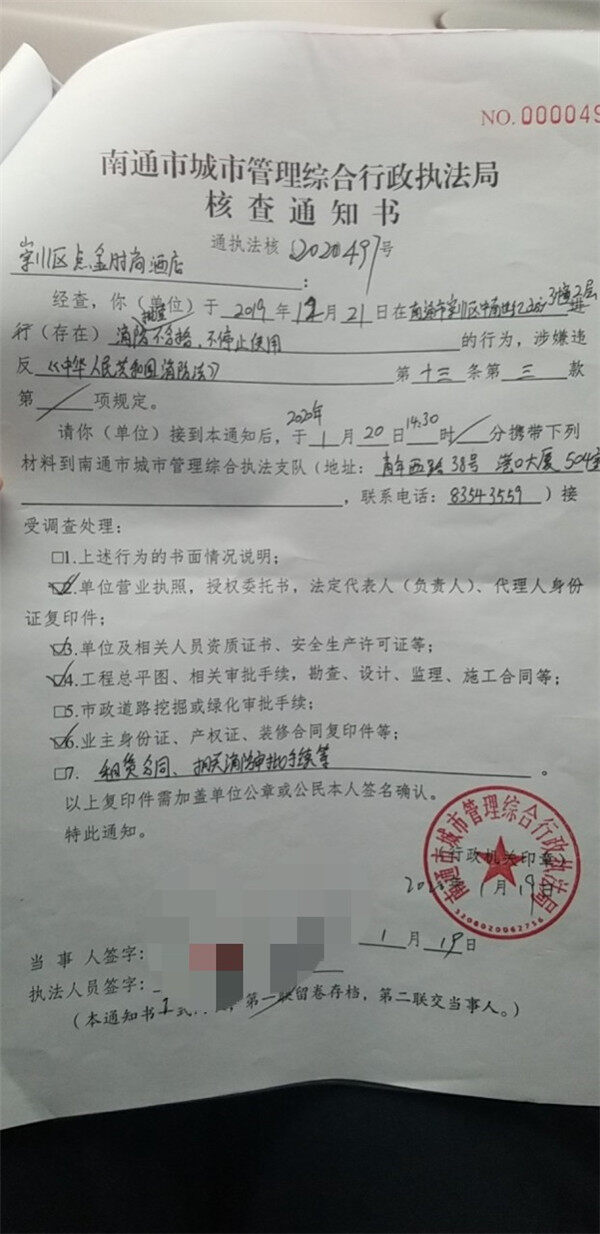 NO. 000049
南通市城市管理综合行政执法局
核查通知书
通执法核 2020497号
崇川区点金时尚酒店：
经查，你（单位）于 2019 年 12 月 21 日在 南通市崇川区中南世纪 3幢2层 进
行（存在） 消防抽查不合格、不停止使用 的行为，涉嫌违
反 《中华人民共和国消防法》 第 十三 条第 三 款
第 / 项规定。
请你（单位）接到本通知后，于 2020年 1 月 20 日 14:30 时 / 分携带下列
材料到南通市城市管理综合执法支队（地址： 青年西路38号 大厦504室
，联系电话： 83543559 ）接
受调查处理：
□1.上述行为的书面情况说明；
☑2.单位营业执照，授权委托书，法定代表人（负责人）、代理人身份
证复印件；
☑3.单位及相关人员资质证书、安全生产许可证等；
☑4.工程总平图、相关审批手续，勘查、设计、监理、施工合同等；
□5.市政道路挖掘或绿化审批手续；
☑6.业主身份证、产权证、装修合同复印件等；
□7. 租赁合同、相关消防审批手续等 。
以上复印件需加盖单位公章或公民本人签名确认。
特此通知。
（行政机关印章）
年 1 月 19 日
南通市城市管理综合行政执法局
3206020062756
当事人签字： 1 月 19 日
执法人员签字：
（本通知书 式 ，第一联留卷存档，第二联交当事人。）